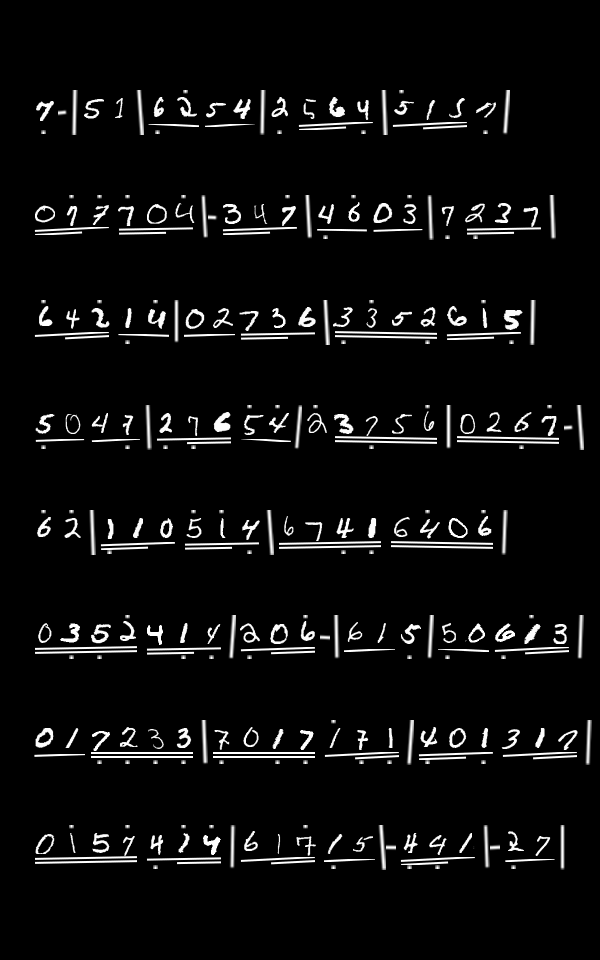 7-|51|6254|2564|5157|
077704|-347|4603|7237|
64214|02736|3352615|
5047|27654|23756|0267-|
62|110514|6741|6406|
0352414|206-|615|50613|
017233|7017171|401317|
0157414|61715|-441|-27|